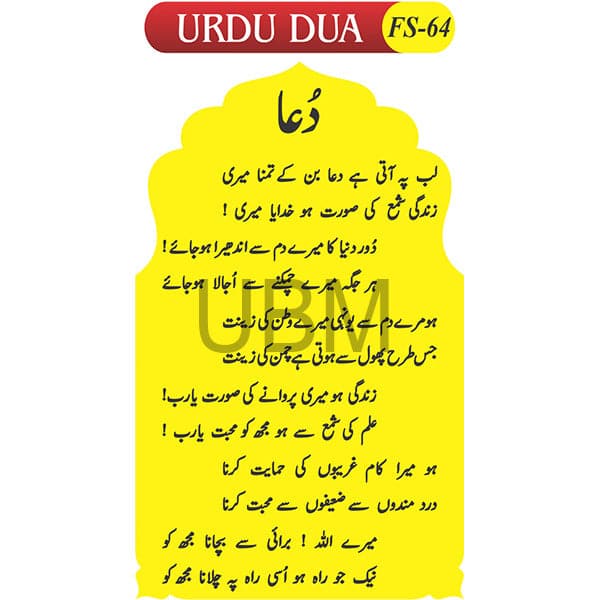 URDU DUA FS-64
دُعا
لب پہ آتی ہے دعا بن کے تمنا میری
زندگی شمع کی صورت ہو خدایا میری !
دُور دنیا کا میرے دم سے اندھیرا ہوجائے !
ہر جگہ میرے چمکنے سے اُجالا ہوجائے
ہو مرے دم سے یونہی میرے وطن کی زینت
جس طرح پھول سے ہوتی ہے چمن کی زینت
زندگی ہو میری پروانے کی صورت یارب!
علم کی شمع سے ہو مجھ کو محبت یارب !
ہو میرا کام غریبوں کی حمایت کرنا
درد مندوں سے ضعیفوں سے محبت کرنا
میرے اللہ ! برائی سے بچانا مجھ کو
نیک جو راہ ہو اُسی راہ پہ چلانا مجھ کو
UBM